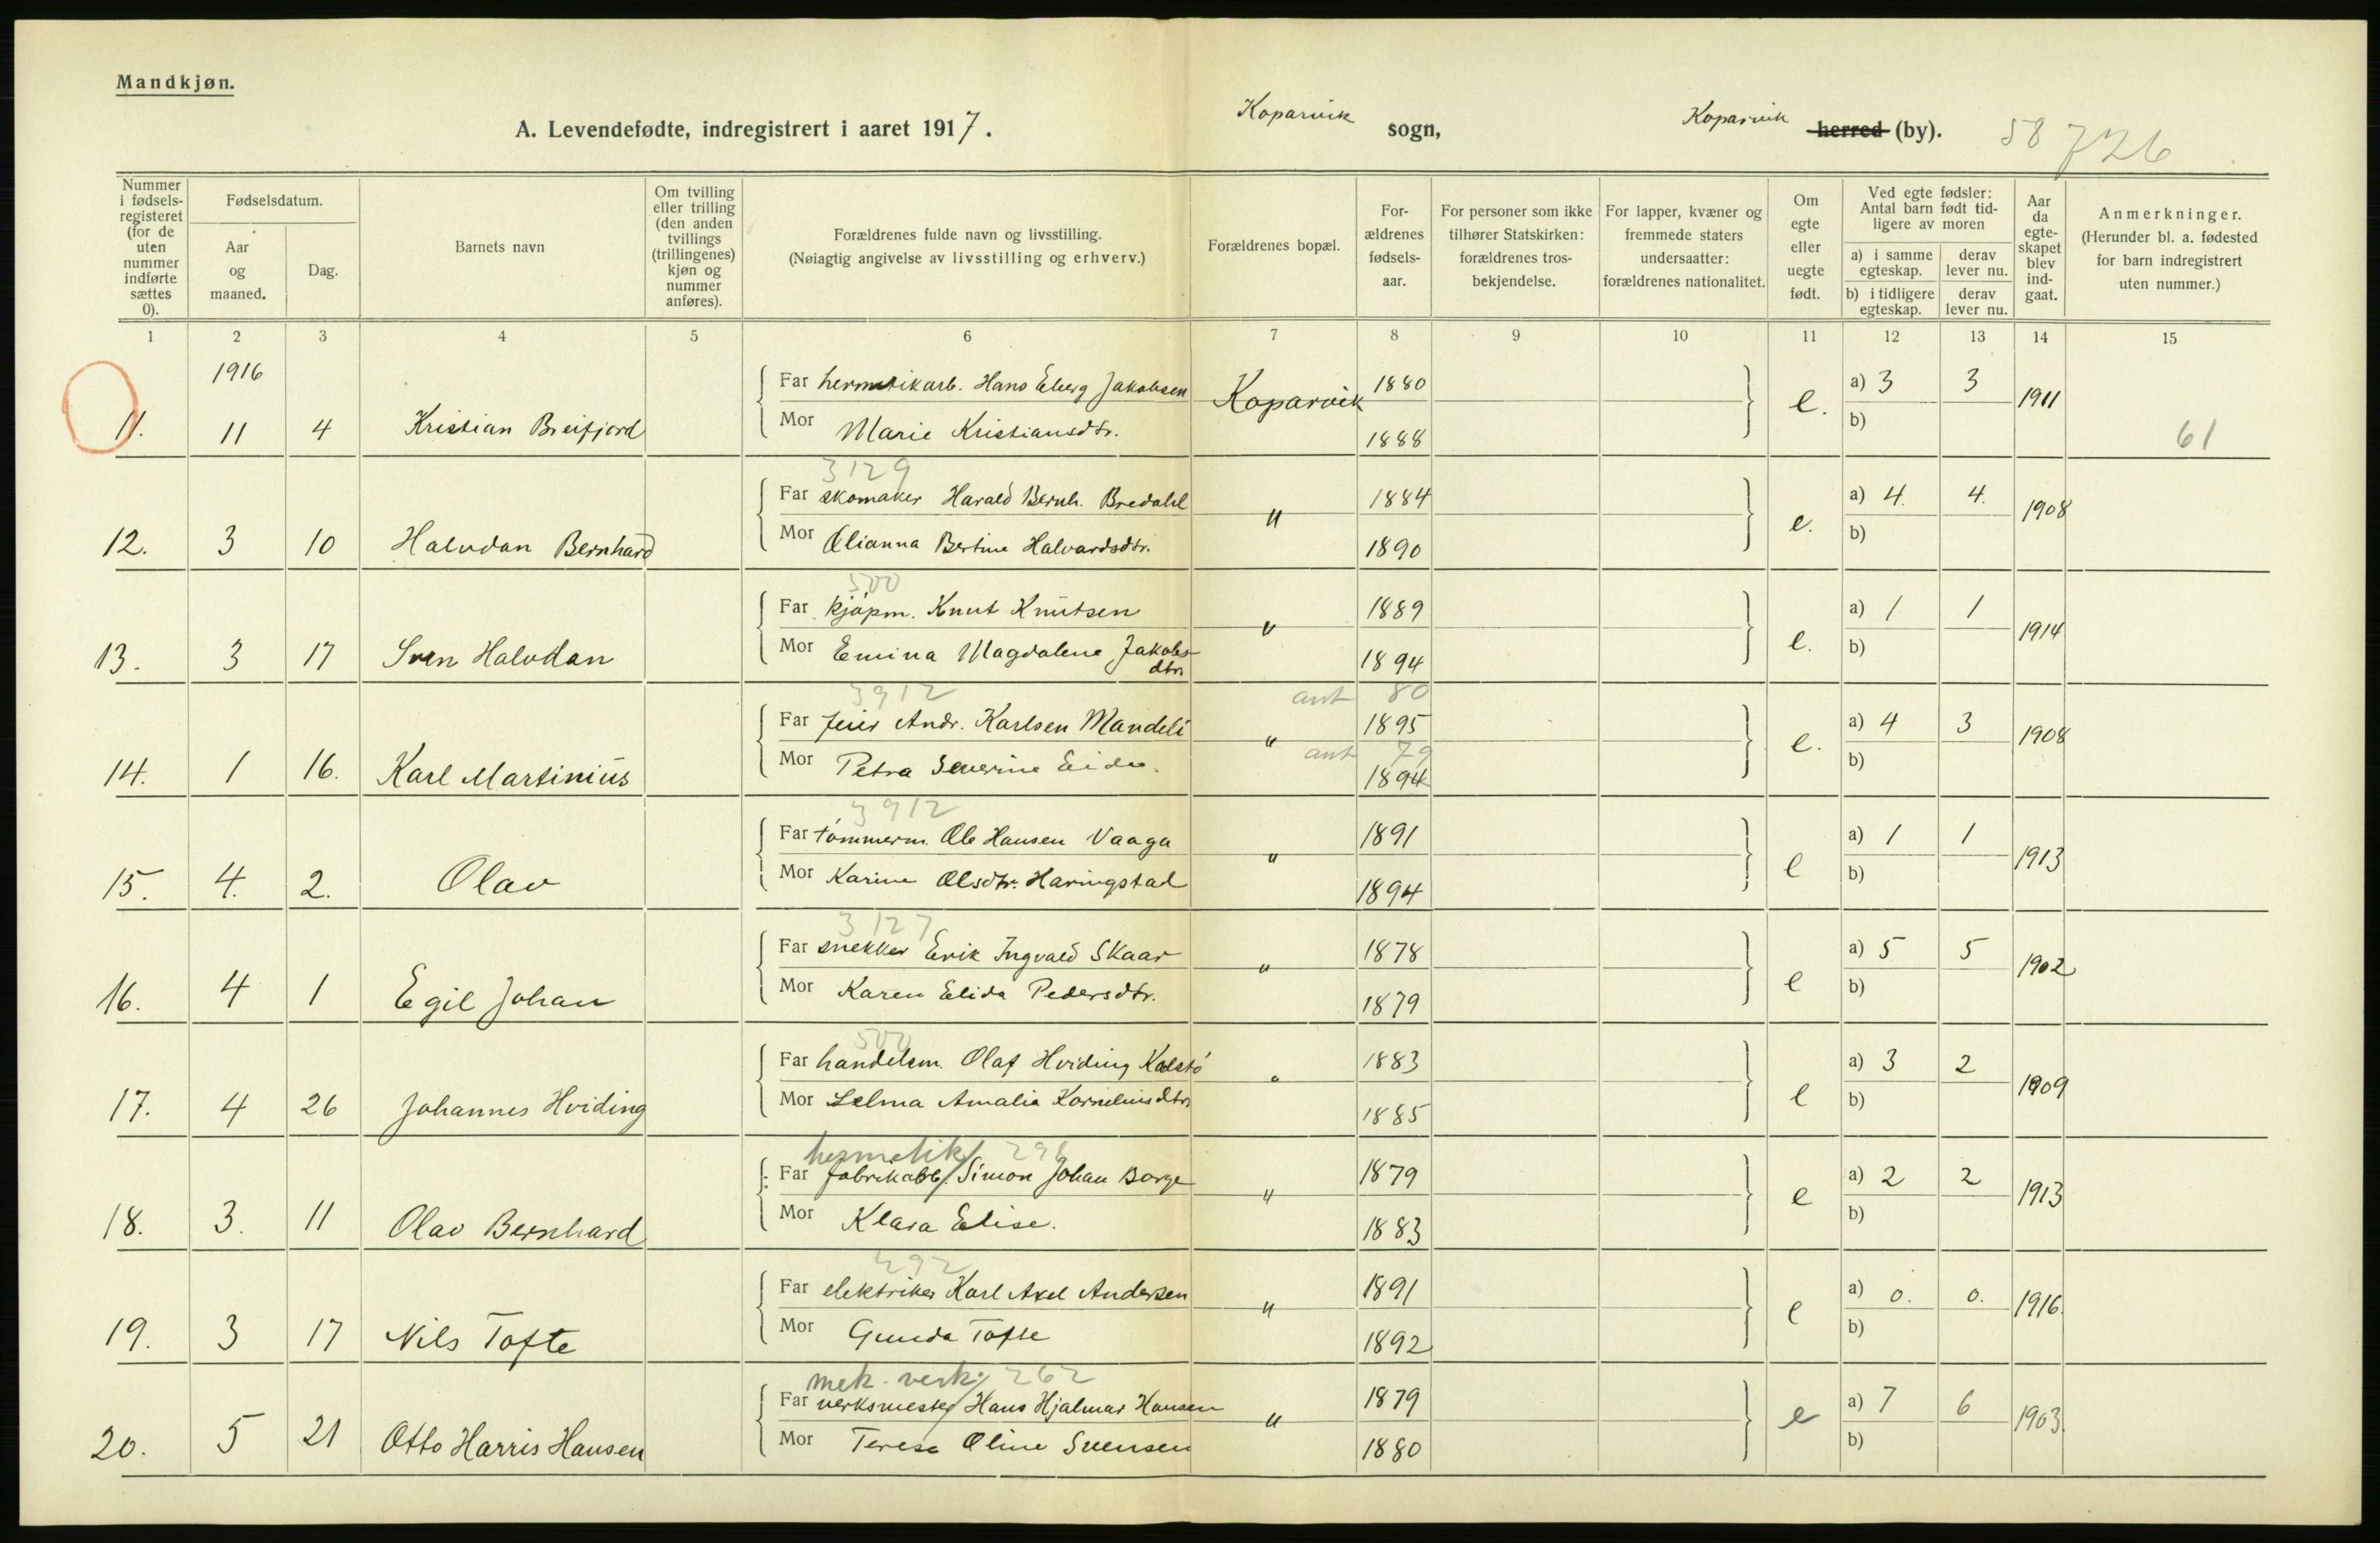 Mandkjøn.
A. Levendefødte, indregistrert i aaret 1917. Koparvik sogn, Koparvik herred (by). 58 726
Nummer i fødsels-registeret (for de uten nummer indførte sættes 0).
Fødselsdatum.
Aar og maaned.
Dag.
Barnets navn
Om tvilling eller trilling (den anden tvillings (trillingenes) kjøn og nummer anføres).
Forældrenes fulde navn og livsstilling.
(Nøiagtig angivelse av livsstilling og erhverv.)
Forældrenes bopæl.
For-ældrenes fødsels-aar.
For personer som ikke tilhører Statskirken: forældrenes tros-bekjendelse.
For lapper, kvæner og fremmede staters undersaatter: forældrenes nationalitet.
Om egte eller uegte født.
Ved egte fødsler: Antal barn født tid-ligere av moren
a) i samme egteskap. derav lever nu.
b) i tidligere egteskap. derav lever nu.
Aar da egte-skapet blev ind-gaat.
Anmerkninger.
(Herunder bl. a. fødested for barn indregistrert uten nummer.)
1 2 3 4 5 6 7 8 9 10 11 12 13 14 15
1916
Far hermetikarb. Hans Eberg Jakobsen Koparvik 1880 a) 3 3 1911
11. 11 4 Kristian Breifjord Mor Marie Kristiansdtr. 1888 e. b) 61
3129
Far skomaker Harald Bernh. Bredahl " 1884 a) 4 4. 1908
12. 3 10 Halvdan Bernhard Mor Olianna Bertine Halvardsdtr. 1890 e. b)
500
Far kjøpm. Knut Knutsen " 1889 a) 1 1 1914
13. 3 17 Sven Halvdan Mor Emina Magdalene Jakobs-dtr. 1894 e. b)
3912 ant 80
Far feier Andr. Karlsen Mandeli " 1895 a) 4 3 1908
ant 79
14. 1 16. Karl Martinius Mor Petra Severine Eide. 1894 e. b)
3912
Far tømmerm. Ole Hansen Vaaga " 1891 a) 1 1 1913
15. 4. 2. Olav Mor Karine Olsdtr. Haringstad 1894 e b)
3127
Far snekker Erik Ingvald Skaar " 1878 a) 5 5 1902
16. 4 1 Egil Johan Mor Karen Elida Pedersdtr. 1879 e b)
500
Far handelsm. Olaf Hviding Kalstø " 1883 a) 3 2 1909
17. 4 26 Johannes Hviding Mor Selma Amalia Korneliusdtr. 1885 e b)
hermetik 296
Far fabrikarb. Simon Johan Borge " 1879 a) 2 2 1913
18. 3. 11 Olav Bernhard Mor Klara Elise. 1883 e b)
Far elektriker Karl Axel Andersen " 1891 a) 0. 0. 1916.
19. 3 17 Nils Tofte Mor Gunda Tofte 1892 e b)
mek. verk. 262
Far verksmester Hans Hjalmar Hansen " 1879 a) 7 6 1903.
20. 5 21 Otto Harris Hansen Mor Terese Oline Svensen 1880 e b)